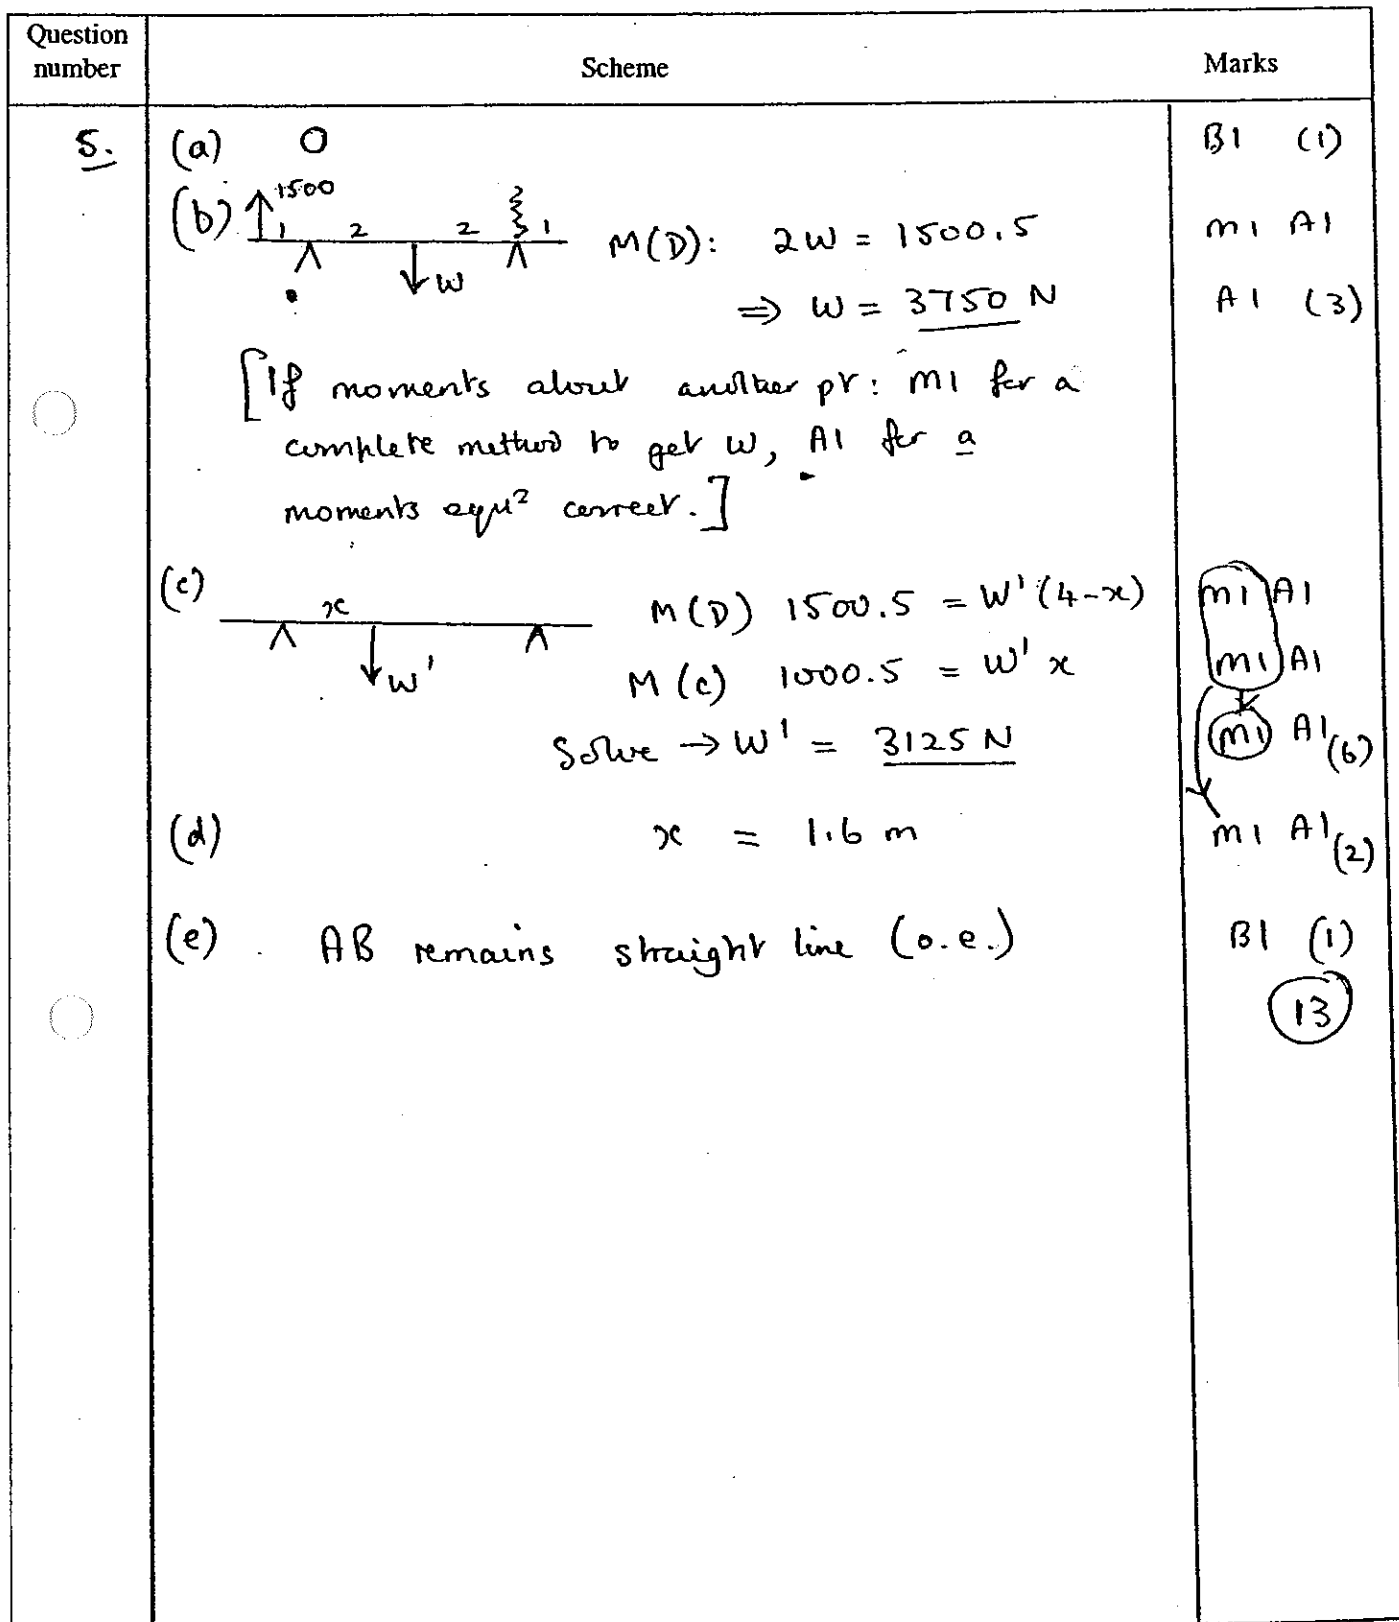 Question number Scheme Marks
5. (a) 0 B1 (1)
(b) 1500
1 2 2 1 M(D): 2W = 1500.5 M1 A1
W
⇒ W = 3750 N A1 (3)
[If moments about another pt: M1 for a
complete method to get W, A1 for a
moments eqn² correct.]
(c) x M(D) 1500.5 = W'(4-x) M1 A1
W' M(C) 1000.5 = W' x M1 A1
Solve → W' = 3125 N M1 A1 (6)
(d) x = 1.6 m M1 A1 (2)
(e) AB remains straight line (o.e.) B1 (1)
13